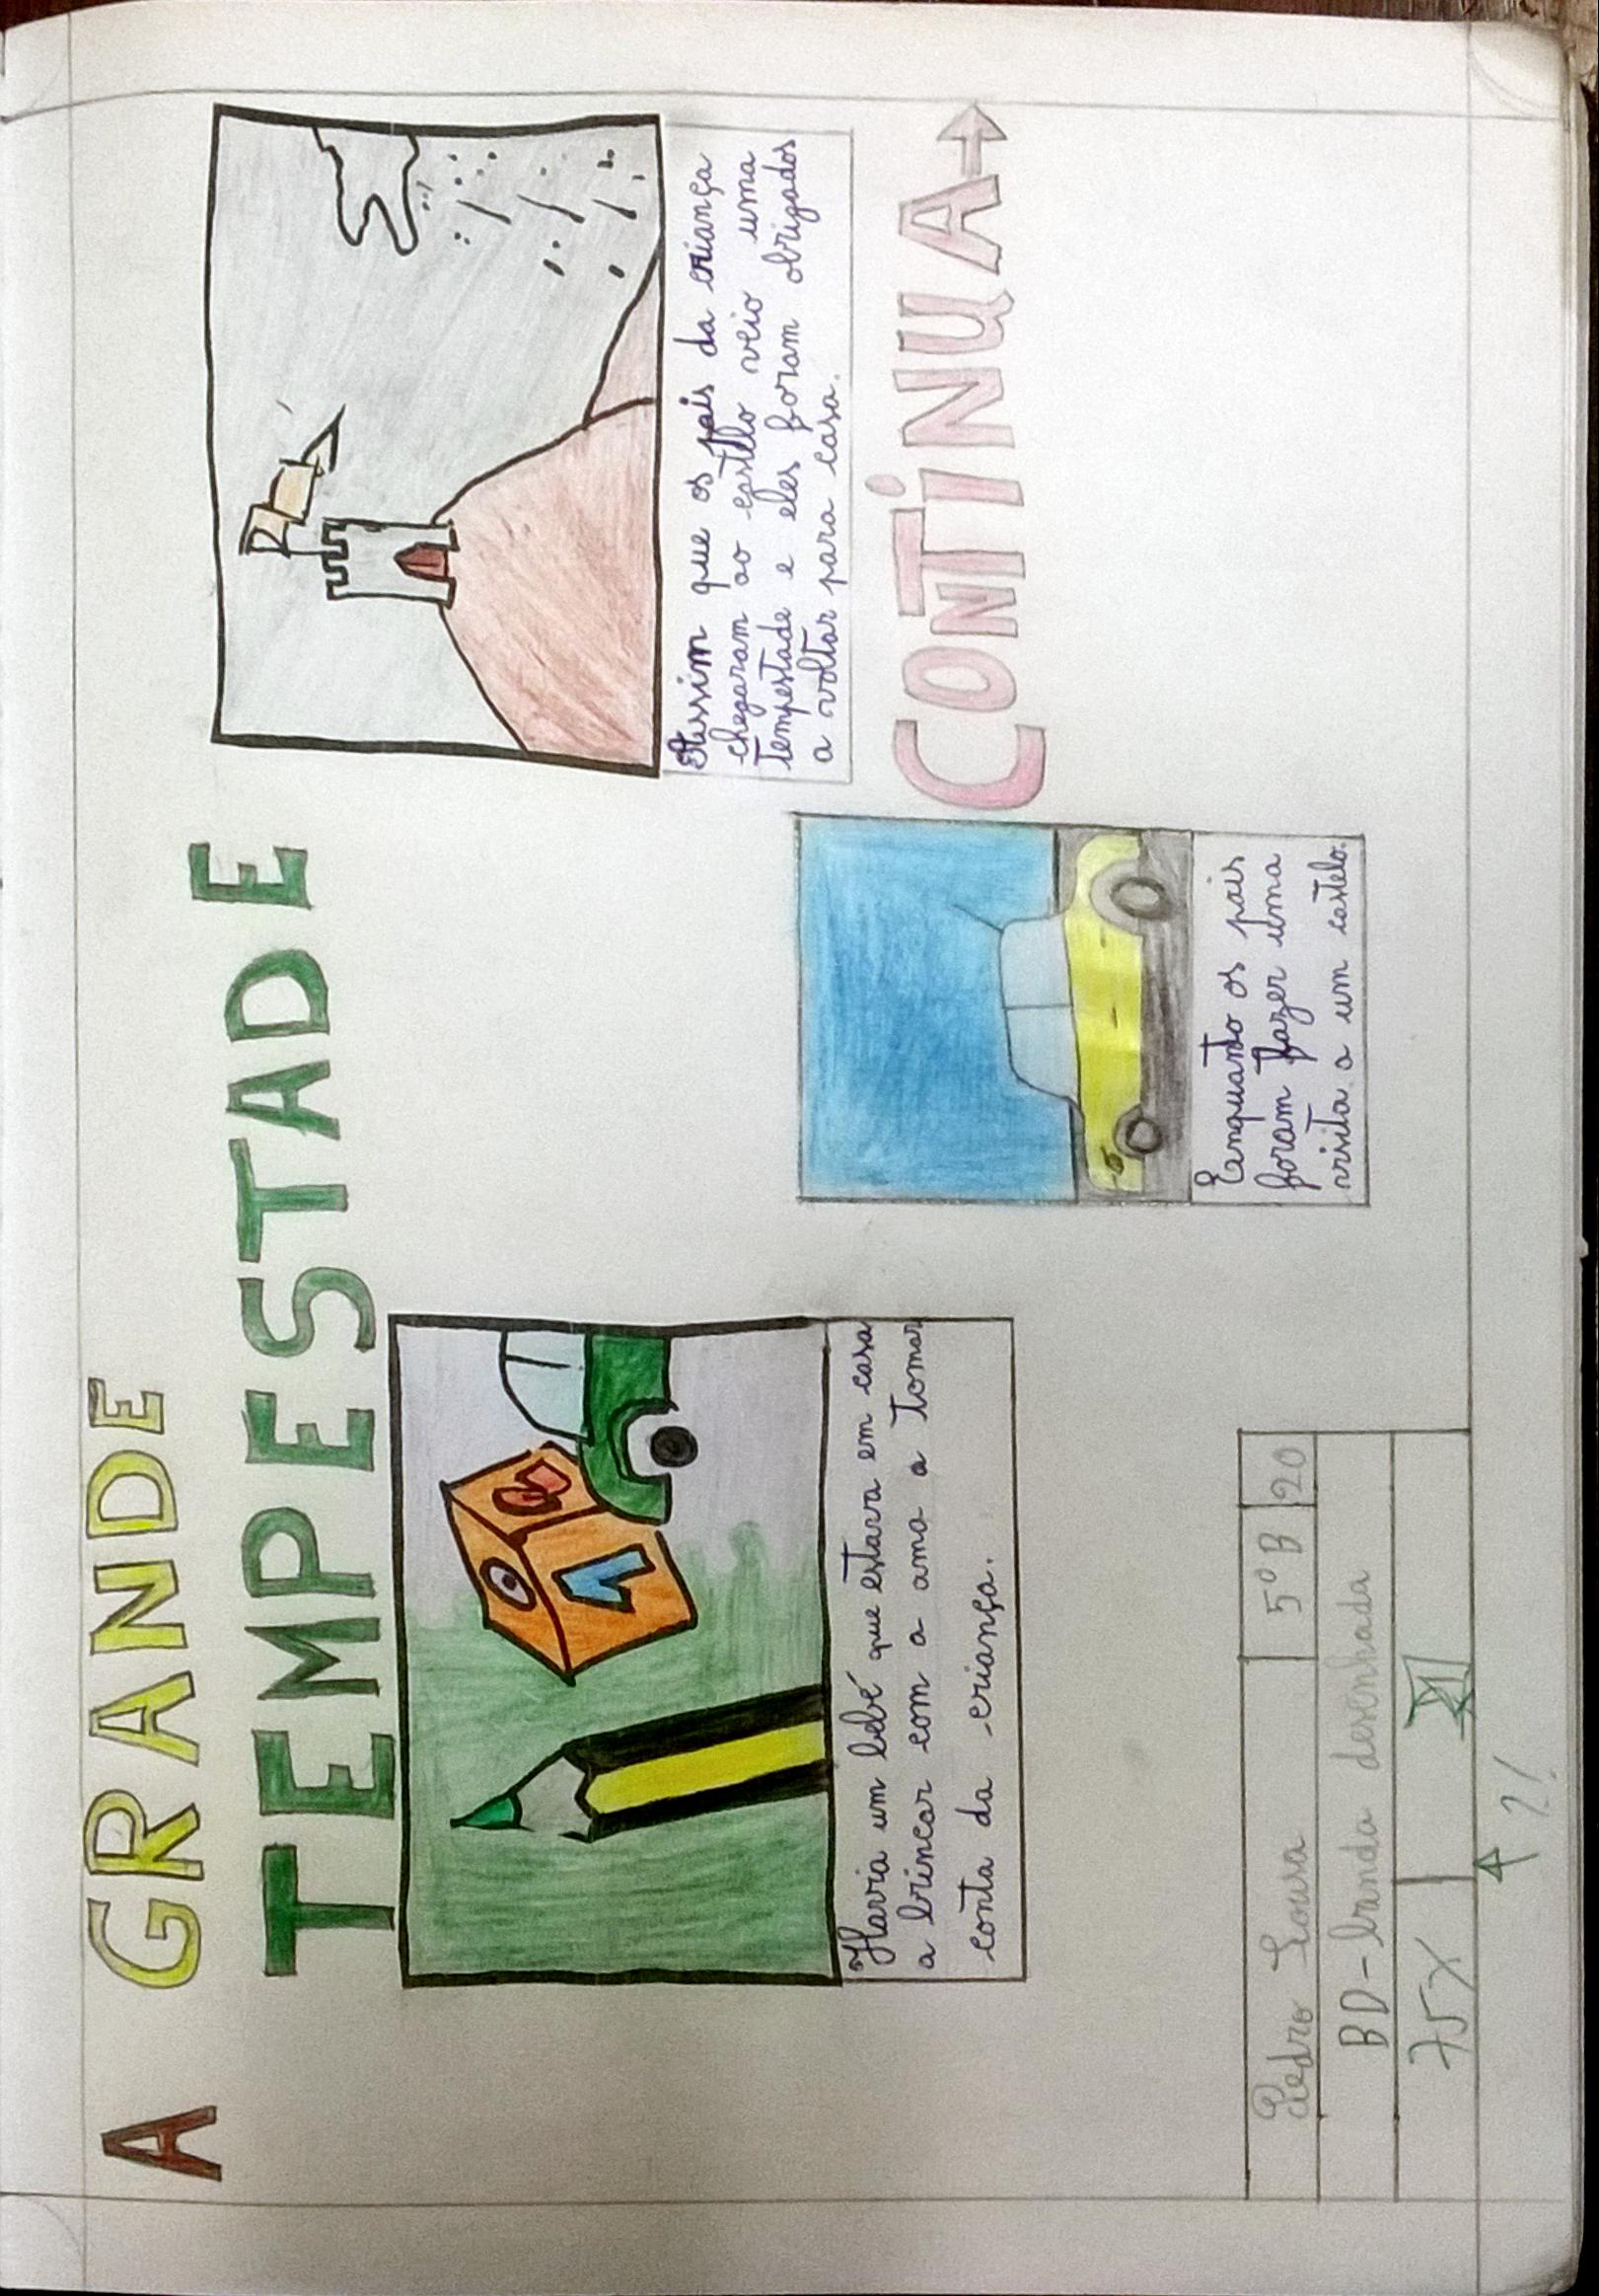 A GRANDE
TEMPESTADE
Havia um bebé que estava em casa
a brincar com a ama a tomar
conta da criança.
Enquanto os pais
foram fazer uma
visita a um castelo.
Assim que os pais da criança
chegaram ao castelo veio uma
tempestade e eles foram obrigados
a voltar para casa.
CONTINUA
1
Pedro Sousa 5º B 20
BD-banda desenhada
75%